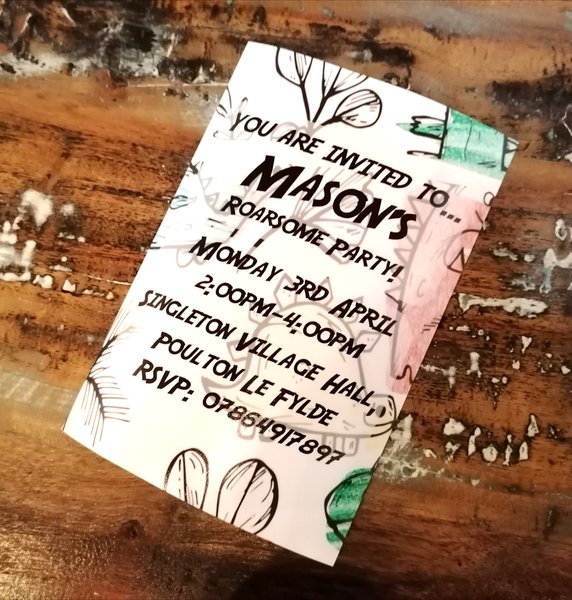 YOU ARE INVITED TO...
MASON'S
ROARSOME PARTY!
MONDAY 3RD APRIL
2:00PM-4:00PM
SINGLETON VILLAGE HALL,
POULTON LE FYLDE
RSVP: 07864917897